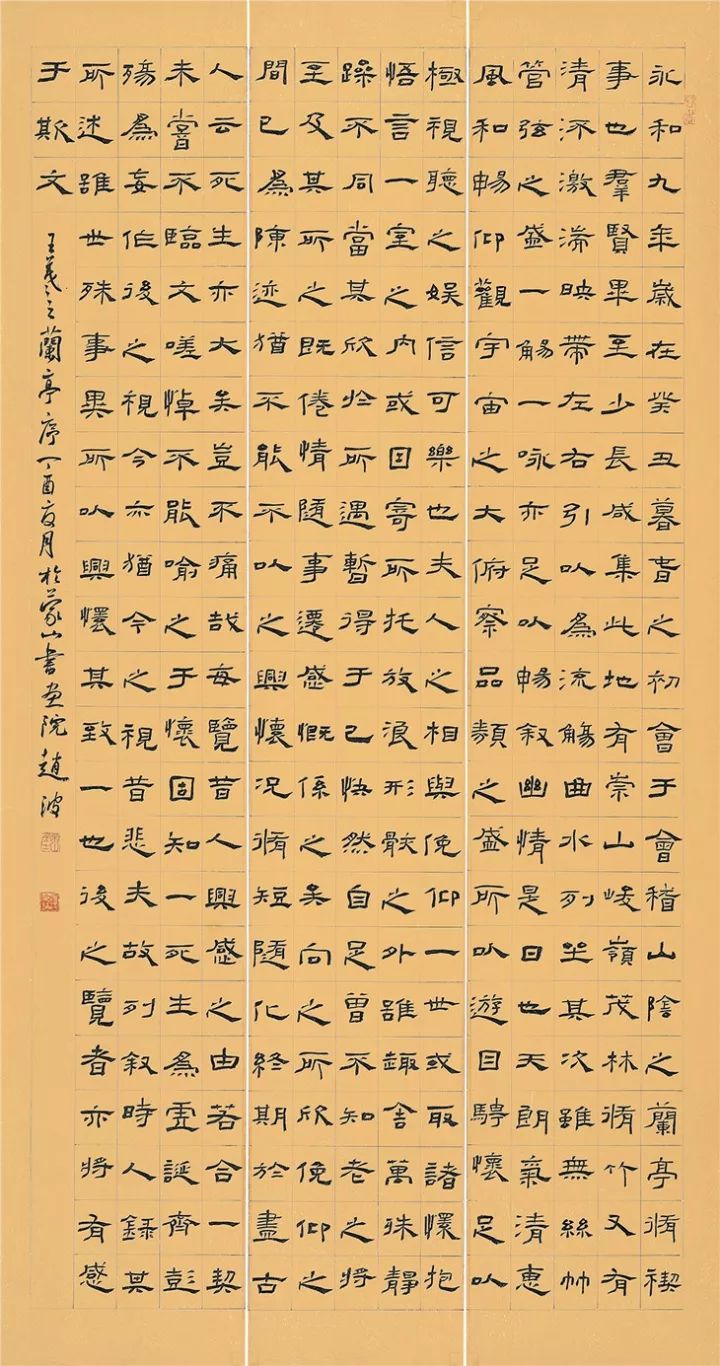 永和九年歲在癸丑暮春之初會于會稽山陰之蘭亭脩禊
事也羣賢畢至少長咸集此地有崇山峻嶺茂林脩竹又有
清流激湍映帶左右引以為流觴曲水列坐其次雖無絲竹
管弦之盛一觴一咏亦足以暢叙幽情是日也天朗氣清惠
風和暢仰觀宇宙之大俯察品類之盛所以遊目騁懷足以
極視聽之娛信可樂也夫人之相與俛仰一世或取諸懷抱
悟言一室之內或因寄所托放浪形骸之外雖趣舍萬殊靜
躁不同當其欣於所遇暫得于己快然自足曾不知老之將
至及其所之既倦情隨事遷感慨係之矣向之所欣俛仰之
間已為陳迹猶不能不以之興懷況脩短隨化終期於盡古
人云死生亦大矣豈不痛哉每覽昔人興感之由若合一契
未嘗不臨文嗟悼不能喻之于懷固知一死生為虛誕齊彭
殤為妄作後之視今亦猶今之視昔悲夫故列叙時人錄其
所述雖世殊事異所以興懷其致一也後之覽者亦將有感
于斯文
王羲之蘭亭序丁酉夏月於蒙山書畫院趙波